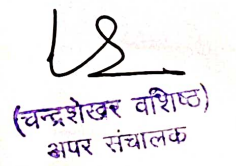 (चन्द्रशेखर वशिष्ठ)
अपर संचालक